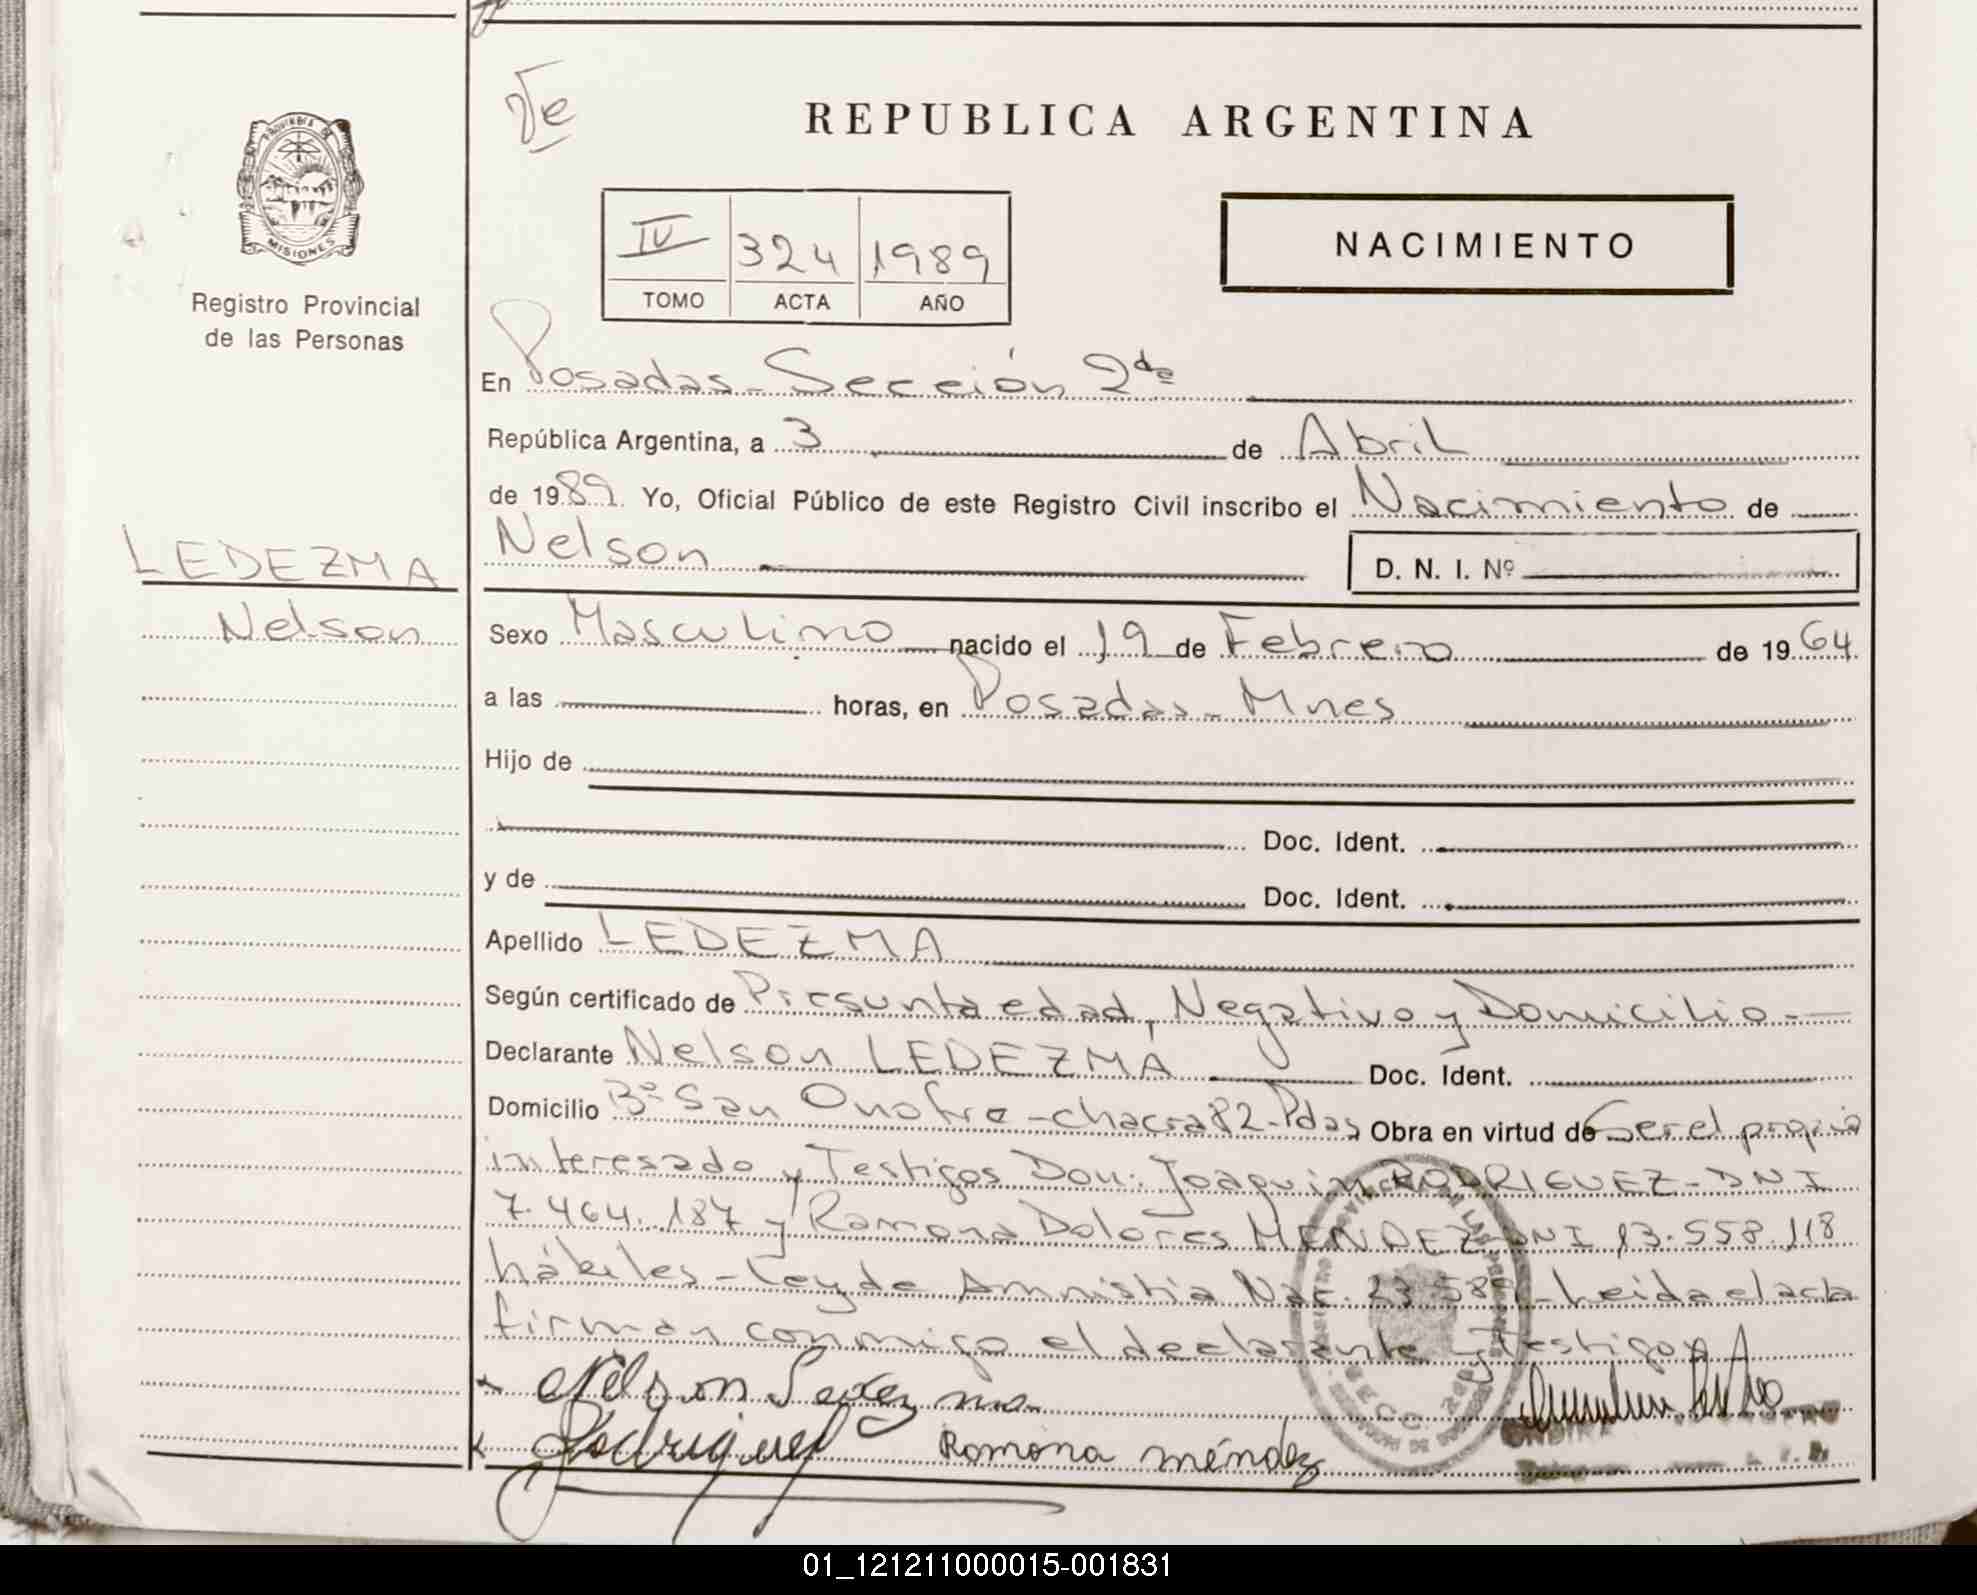 REPUBLICA ARGENTINA
PROVINCIA DE
MISIONES
Registro Provincial
de las Personas
IV 324 1989
TOMO ACTA AÑO
NACIMIENTO
En Posadas - Sección 2da
República Argentina, a 3 de Abril
de 1989. Yo, Oficial Público de este Registro Civil inscribo el Nacimiento de
LEDEZMA
Nelson
Nelson D. N. I. Nº
Sexo Masculino nacido el 19 de Febrero de 1964
a las horas, en Posadas - Mnes
Hijo de
Doc. Ident.
y de Doc. Ident.
Apellido LEDEZMA
Según certificado de Presunta edad, Negativo y Domicilio.-
Declarante Nelson LEDEZMA Doc. Ident.
Domicilio Bº San Onofre - chacra 82 - Pdas Obra en virtud de Ser el propio
interesado y Testigos Don: Joaquin RODRIGUEZ - DNI
7.464.187 y Ramona Dolores MENDEZ - DNI 13.558.118
hábiles - Ley de Amnistia Nac. 23.589 - Leida el acta
firman conmigo el declarante y Testigos
Nelson Ledezma
Rodriguez Ramona Méndez
01_121211000015-001831